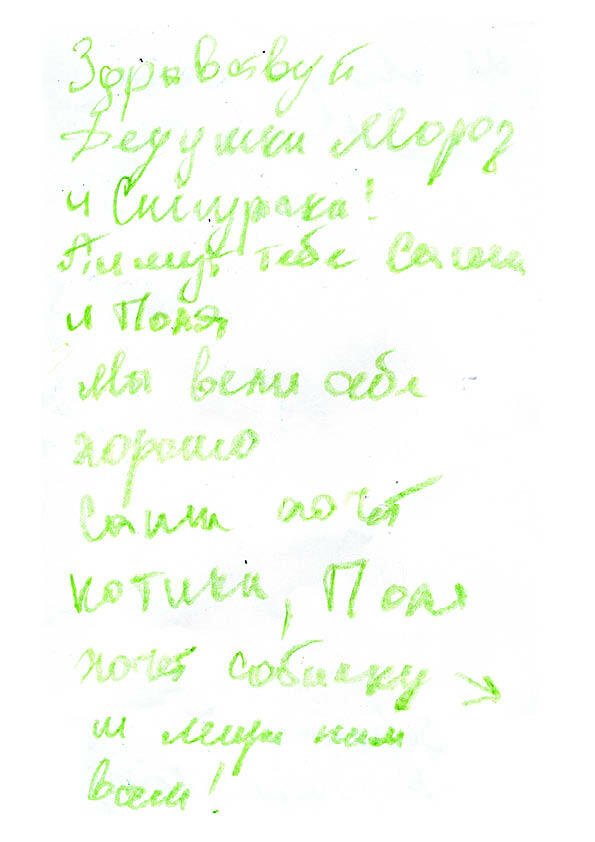 Здравствуй
Дедушка Мороз
и Снигурочка!
Пишут тебе Саша
и Поля
Мы вели себя
хорошо
Саша хочет
котика, Поля
хочет собаку →
и мира нам
всем!